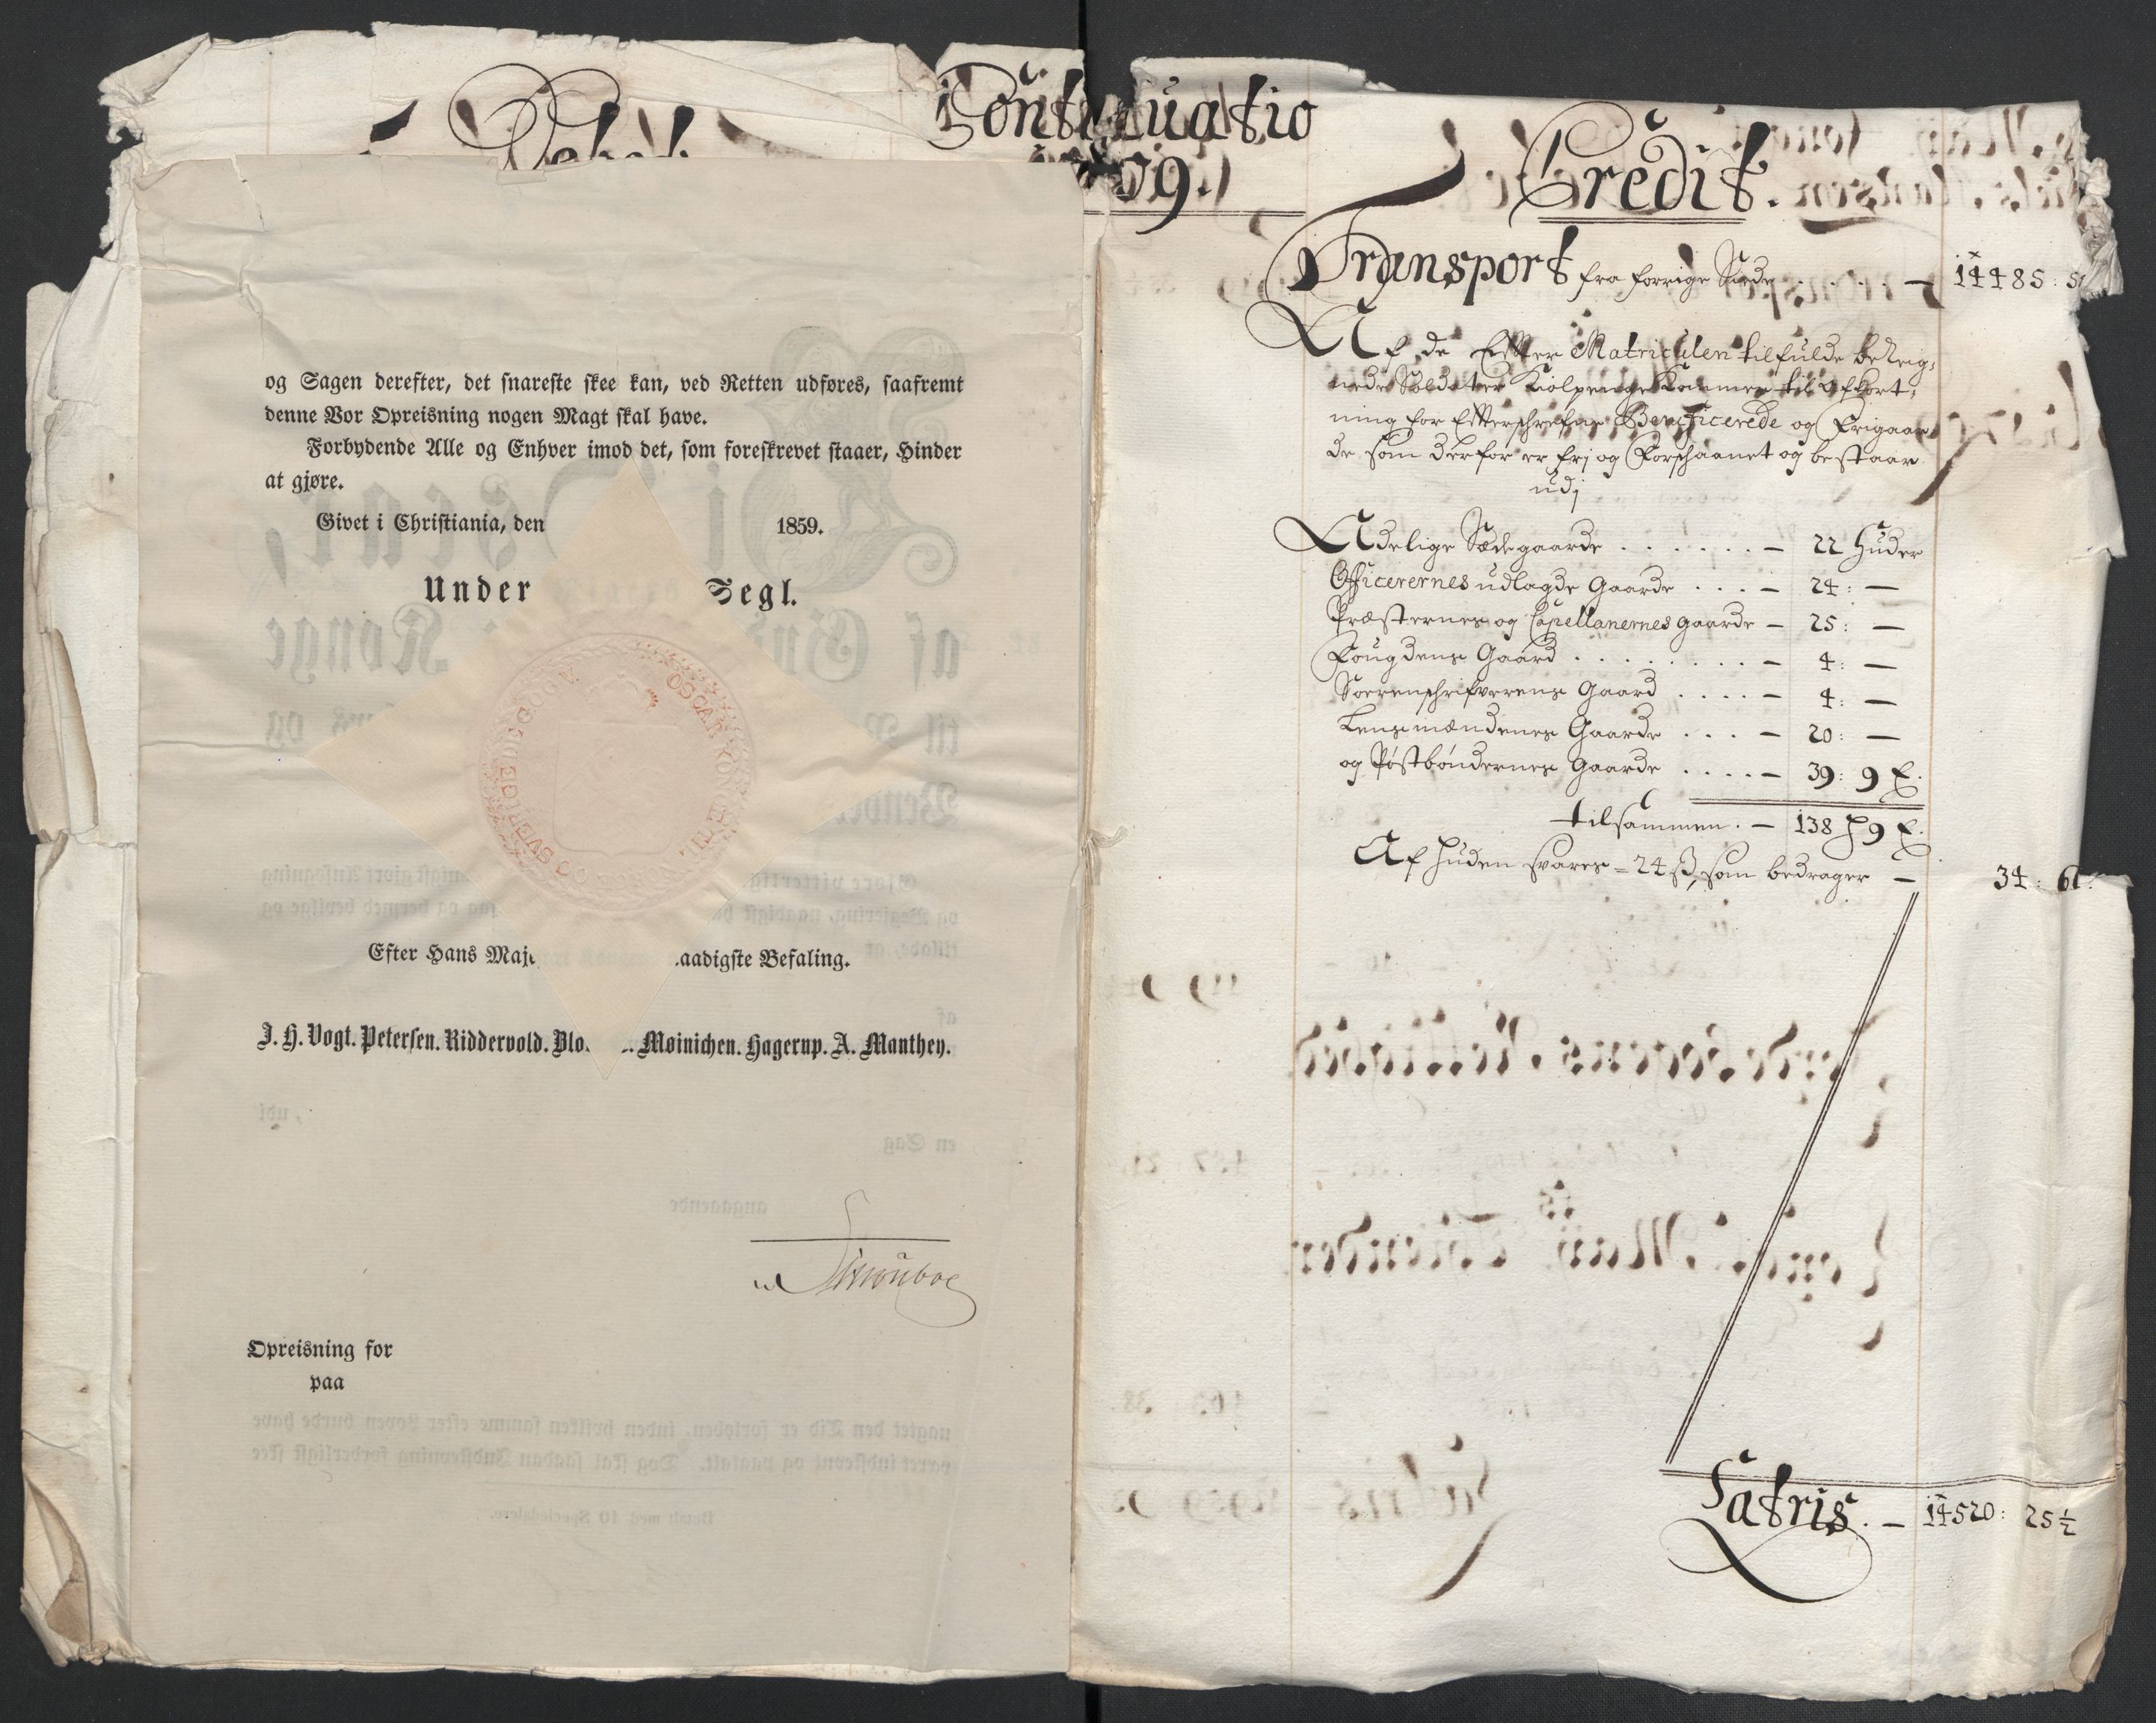 Continuatio
09.
Debet
og Sagen derefter, det snareste skee kan, ved Retten udføres, saafremt
denne Vor Opreisning nogen Magt skal have.
Forbydende Alle og Enhver imod det, som foreskrevet staaer, Hinder
at gjøre.
Givet i Christiania, den 1859.
Under Segl.
OSCAR
Efter Hans Maje aadigste Befaling.
J. H. Vogt. Petersen. Riddervold. Blo Moinichen. Hagerup. A. Manthey.
Opreisning for
paa
Credit.
Transport fra forrige Siide — 14485: 5
Af de Efter Matriculen tilfulde bereig-
nede Soldater Kiolpenge Kommer til afkort-
ning for Efterschrefne Beneficerede og Frigaar-
de som derfor er frj og Forschaanet og bestaar
udj
Adelige Sædegaarde . . . . . . — 22 Huder
Officerernes udlagde Gaarde . . . — 24: —
Præsternes og Capellanernes gaarde — 25: —
Fougdens Gaard . . . . . . . . — 4: —
Sorenschrifverens Gaard . . . . — 4: —
Lensmændenes Gaarde . . . — 20: —
og Postbøndernes Gaarde . . . . — 39: 9
tilsammen. — 138 H 9
Af Huden svares = 24 ß, som bedrager — 34: 61:
Latris. — 14520: 25½